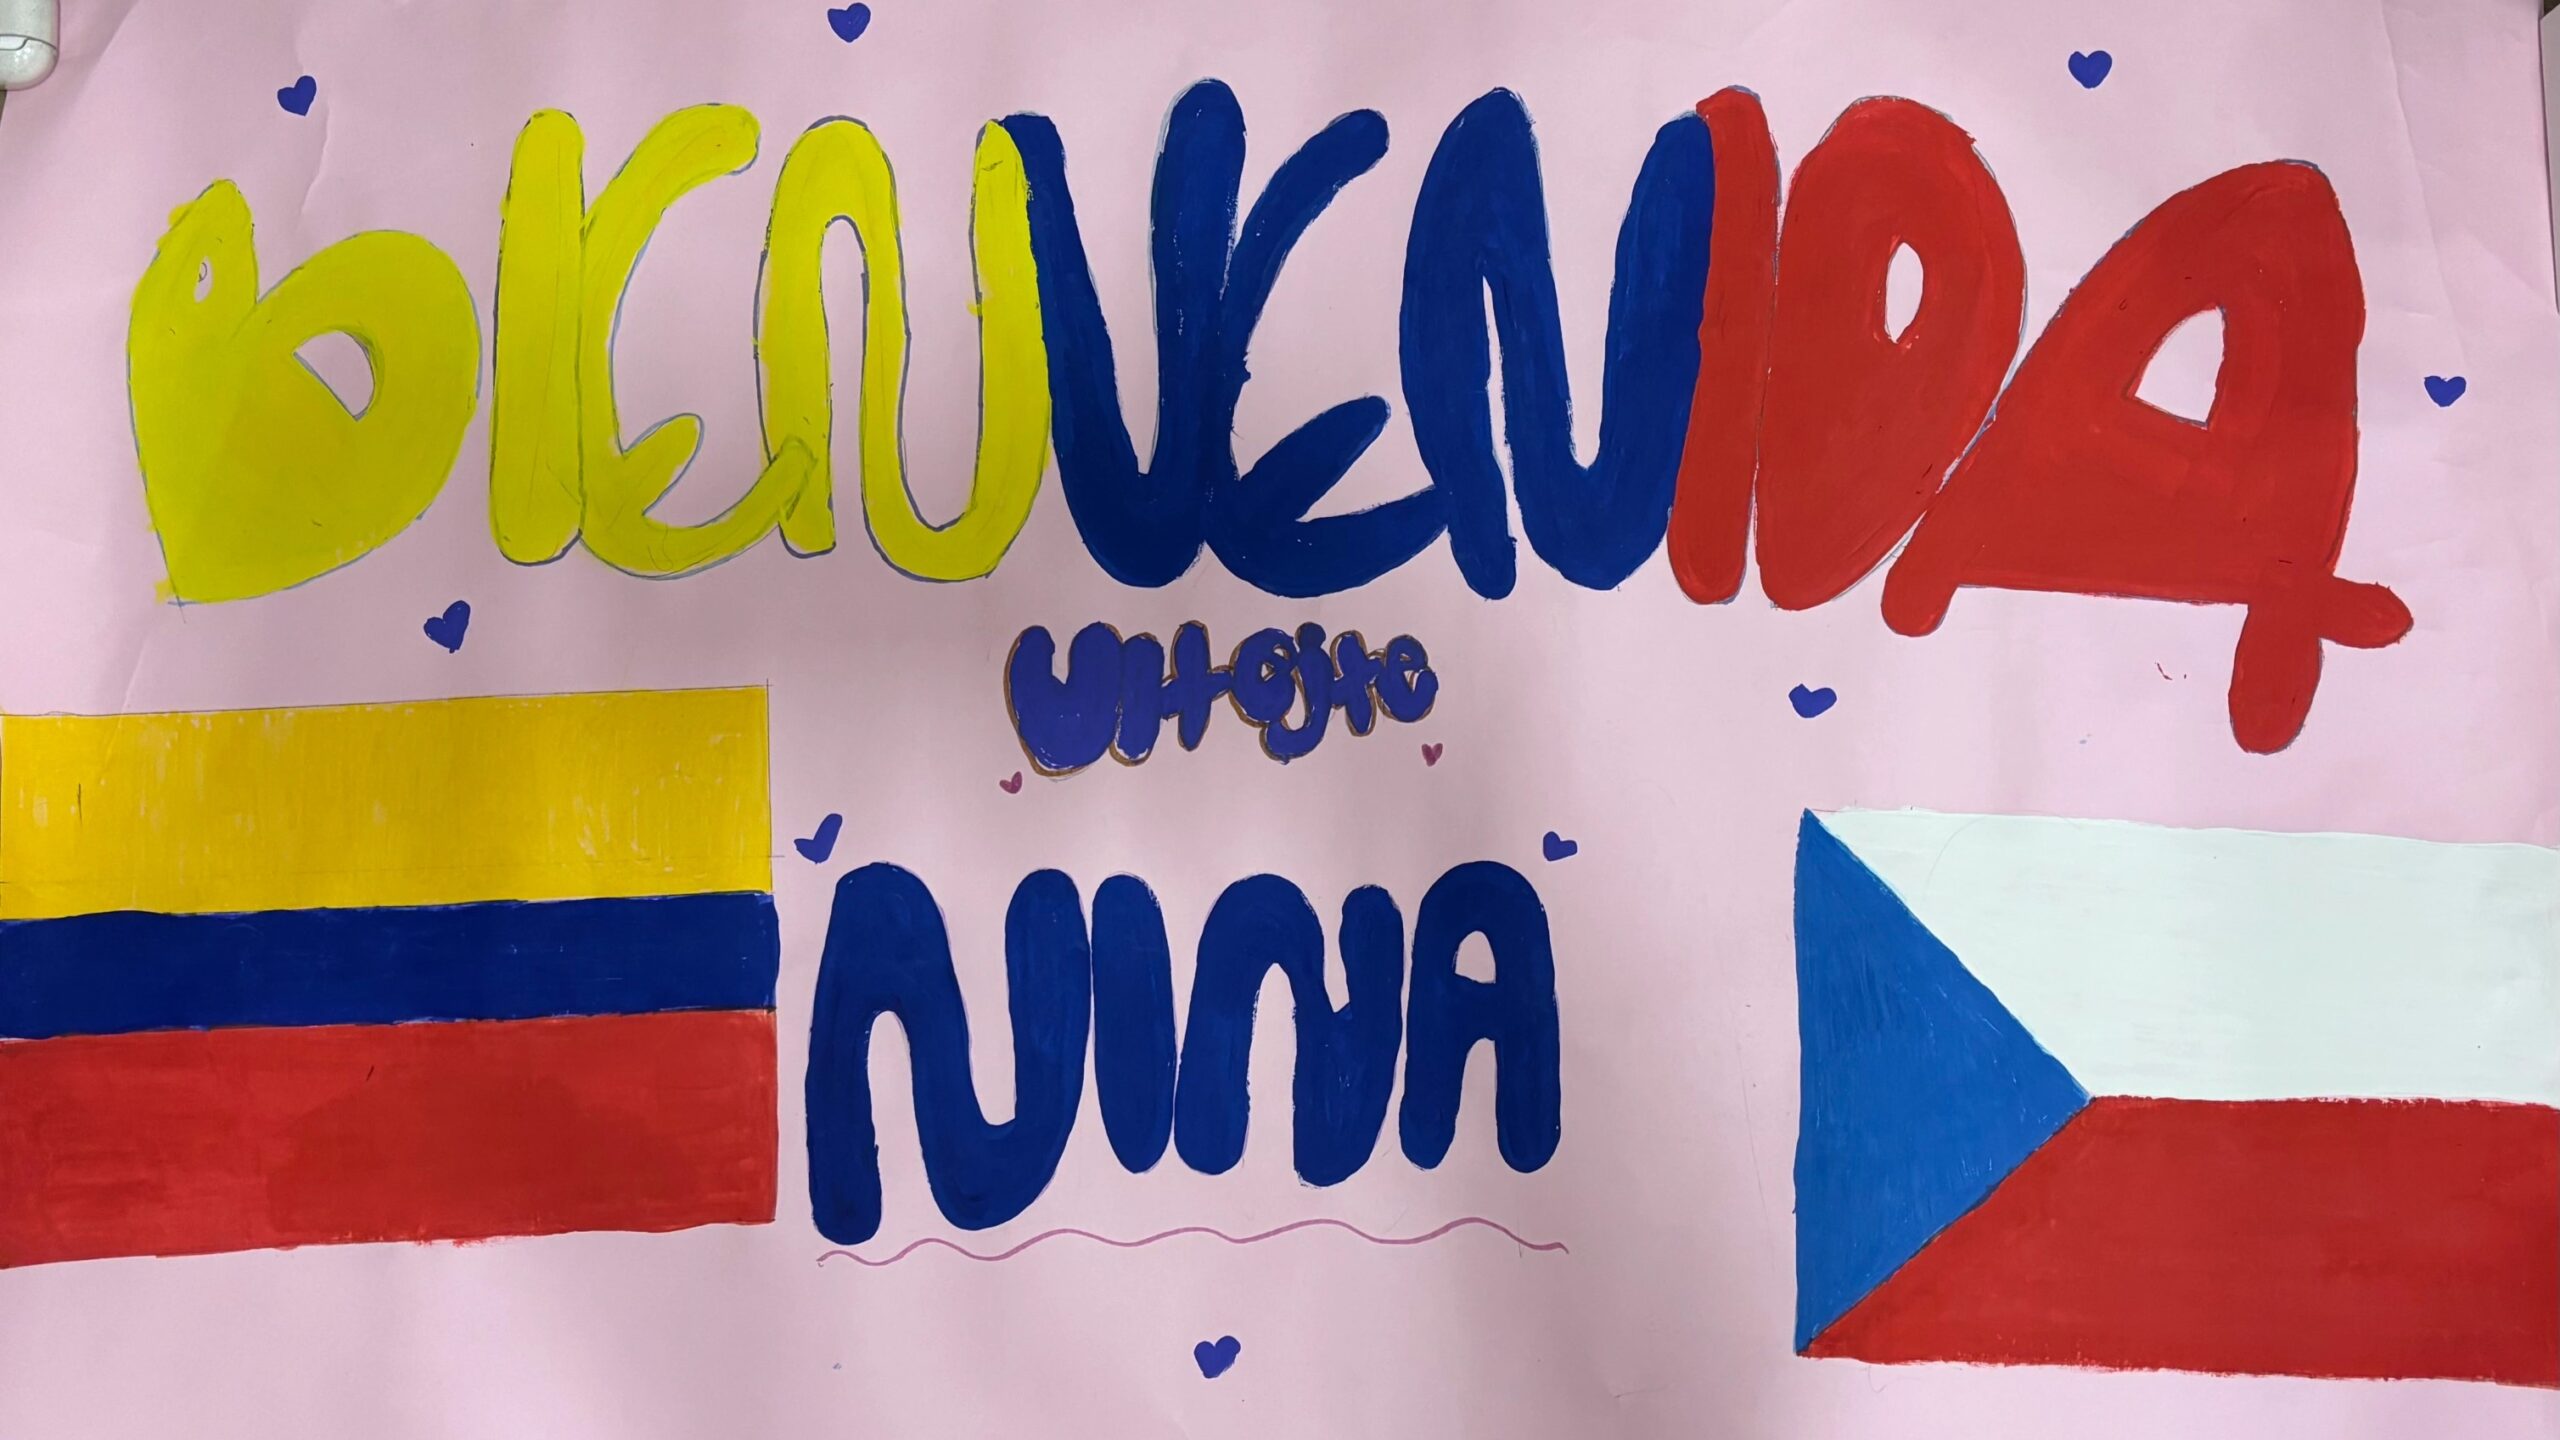 BIENVENIDA
vitejte
NINA